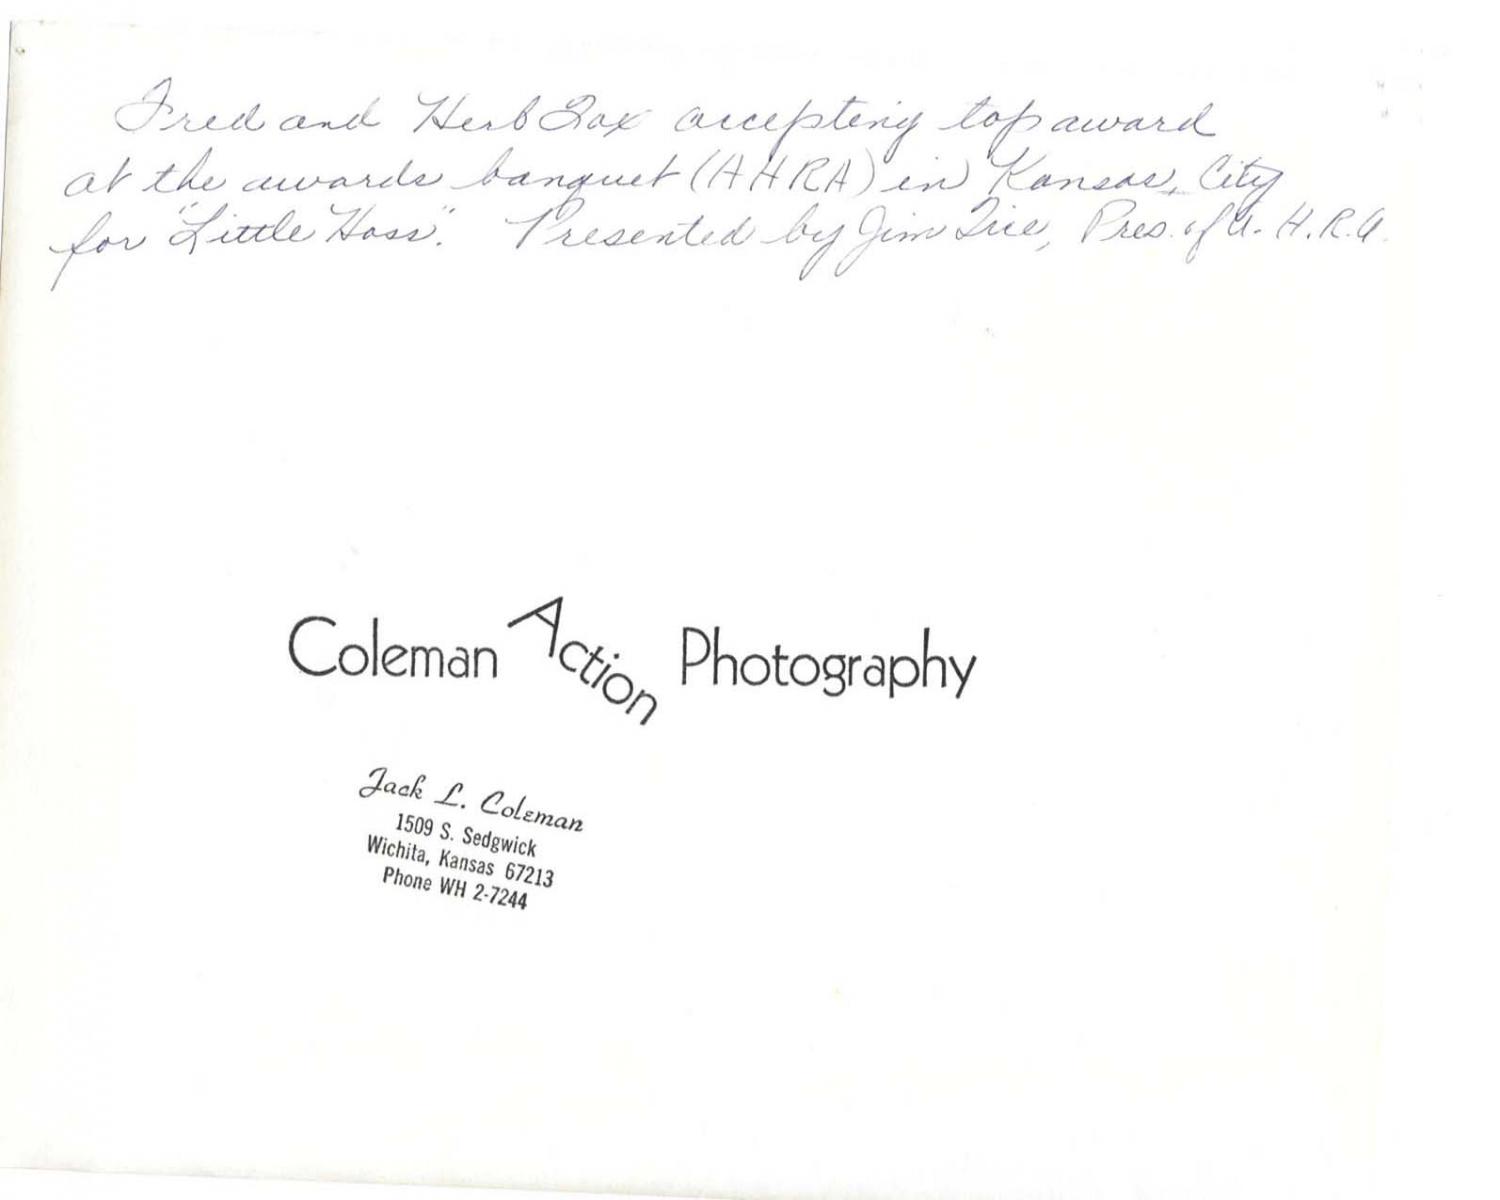 Fred and Herb accepting top award
at the awards banquet (AHRA) in Kansas, City
for "Little Hoss". Presented by Jim Tice, Pres. of A. H. R. A.
Coleman Action Photography
Jack L. Coleman
1509 S. Sedgwick
Wichita, Kansas 67213
Phone WH 2-7244